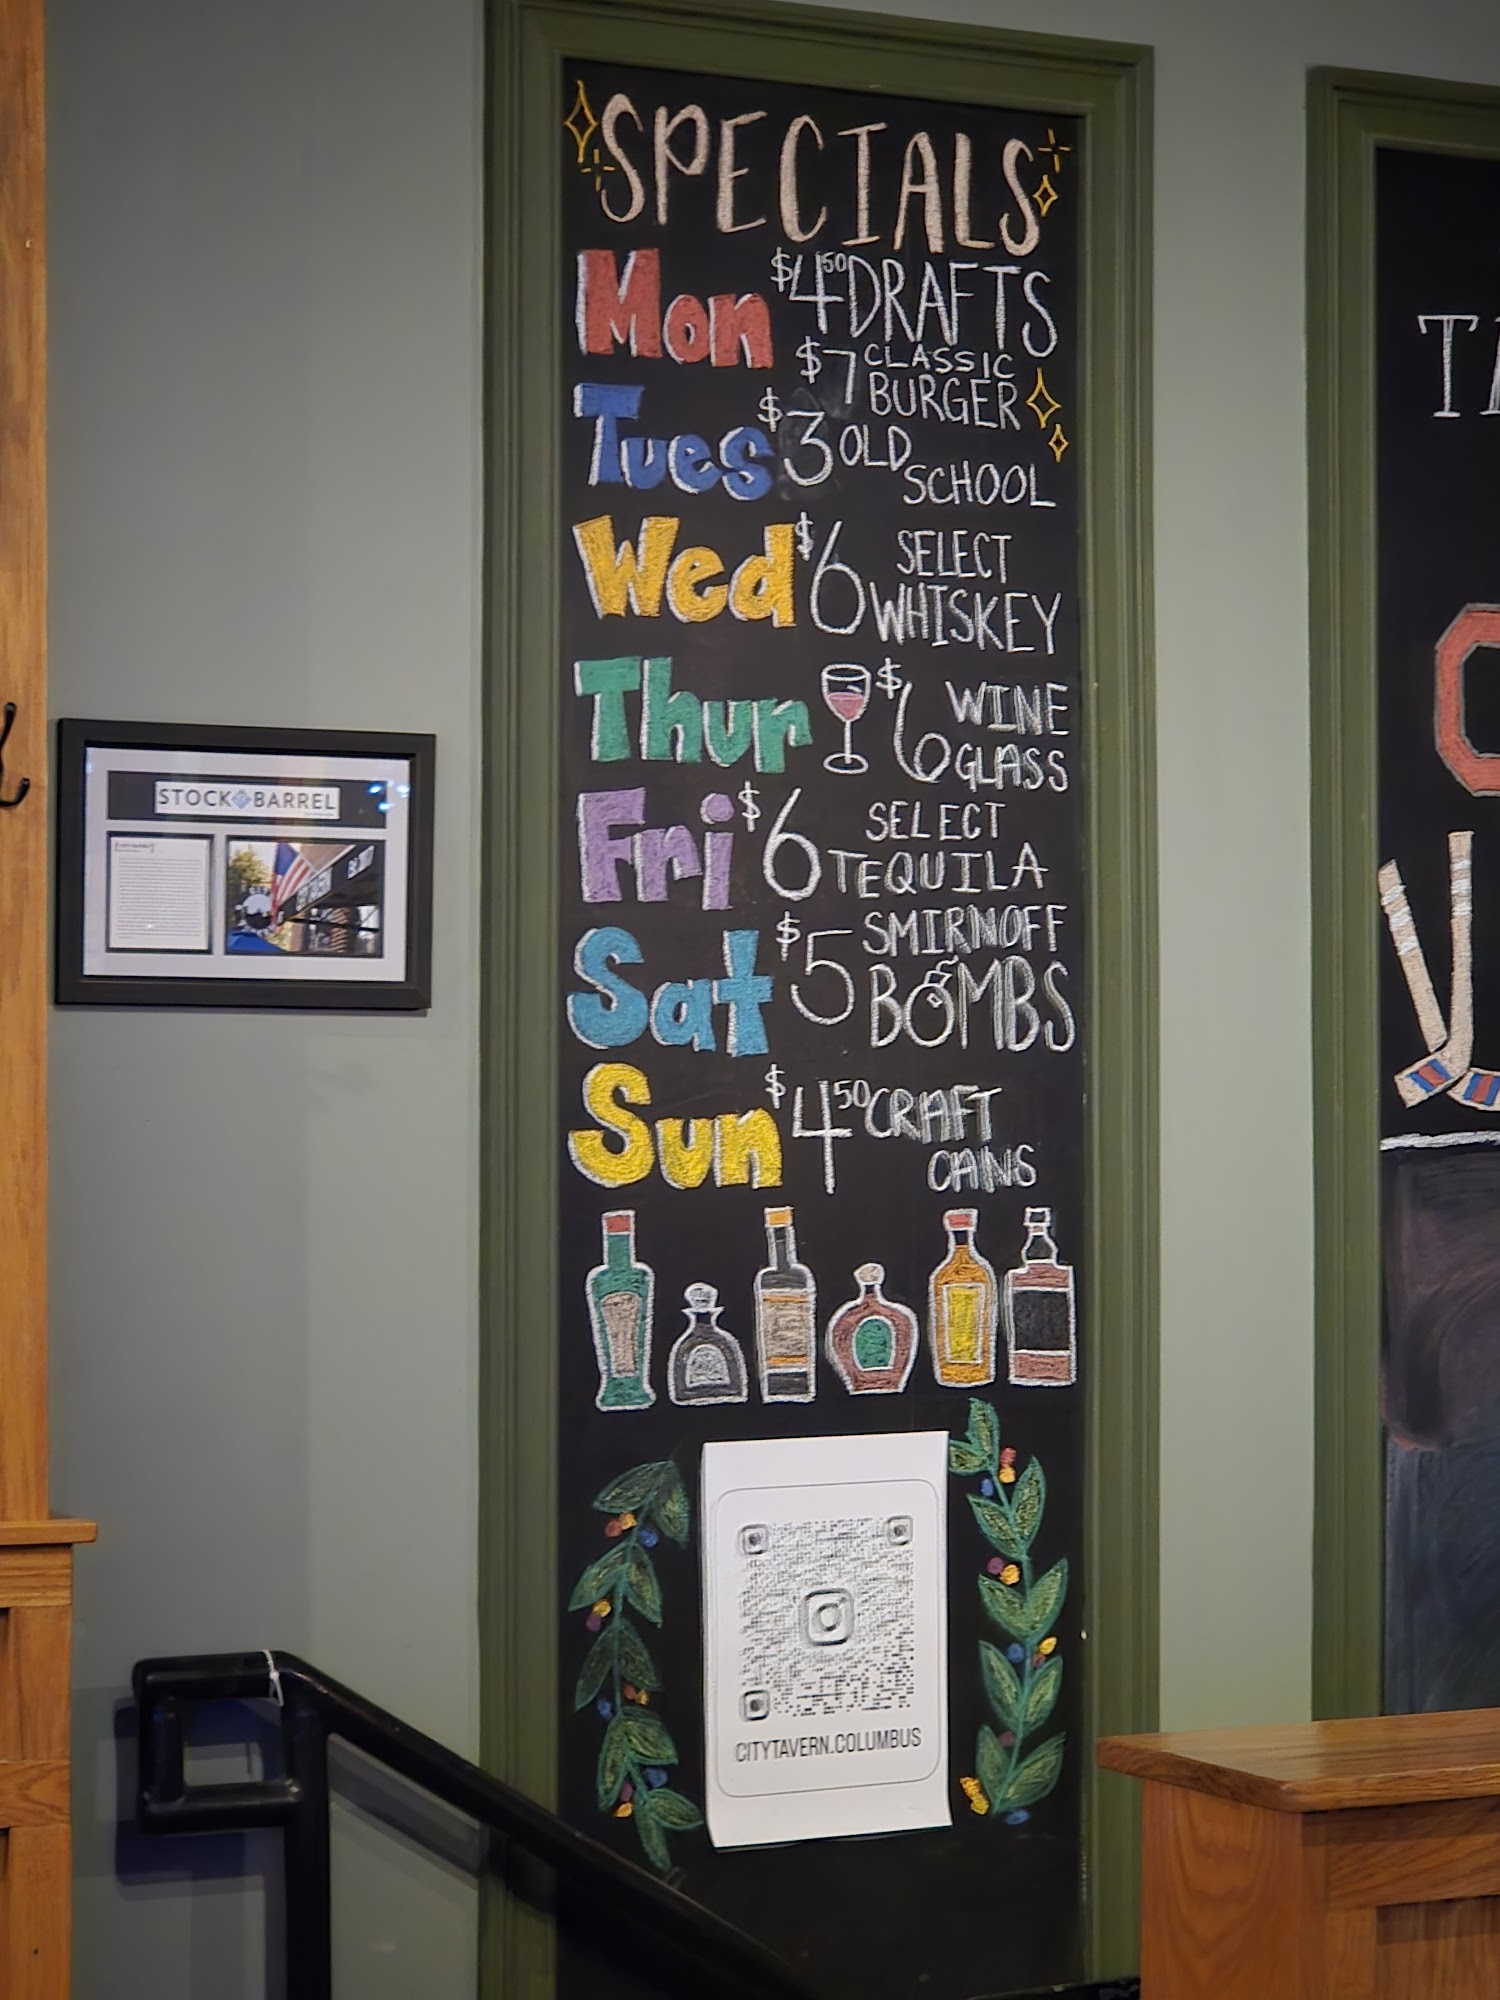 SPECIALS
Mon $4.50 DRAFTS
$7 CLASSIC
BURGER
Tues $3 OLD
SCHOOL
Wed $6 SELECT
WHISKEY
Thur $6 WINE
GLASS
Fri $6 SELECT
TEQUILA
Sat $5 SMIRNOFF
BOMBS
Sun $4.50 CRAFT
CANS
CITYTAVERN.COLUMBUS
STOCK & BARREL